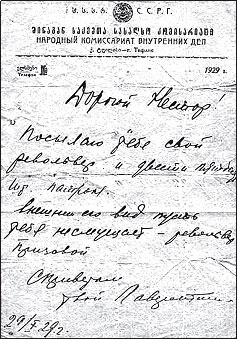 ს.ს.ს.რ. С.С.Р.Г.
შინაგან საქმეთა სახალხო კომისარიატი
НАРОДНЫЙ КОМИССАРИАТ ВНУТРЕННИХ ДЕЛ
Телефон
1929 г.
Дорогой Нестор!
Посылаю тебе свой
револьвер и двести пятьдесят
шт. патрон.
Внешний его вид пусть
тебя не смущает – револьвер
призовой
С приветом
твой Лаврентий.
29/V 29 г.